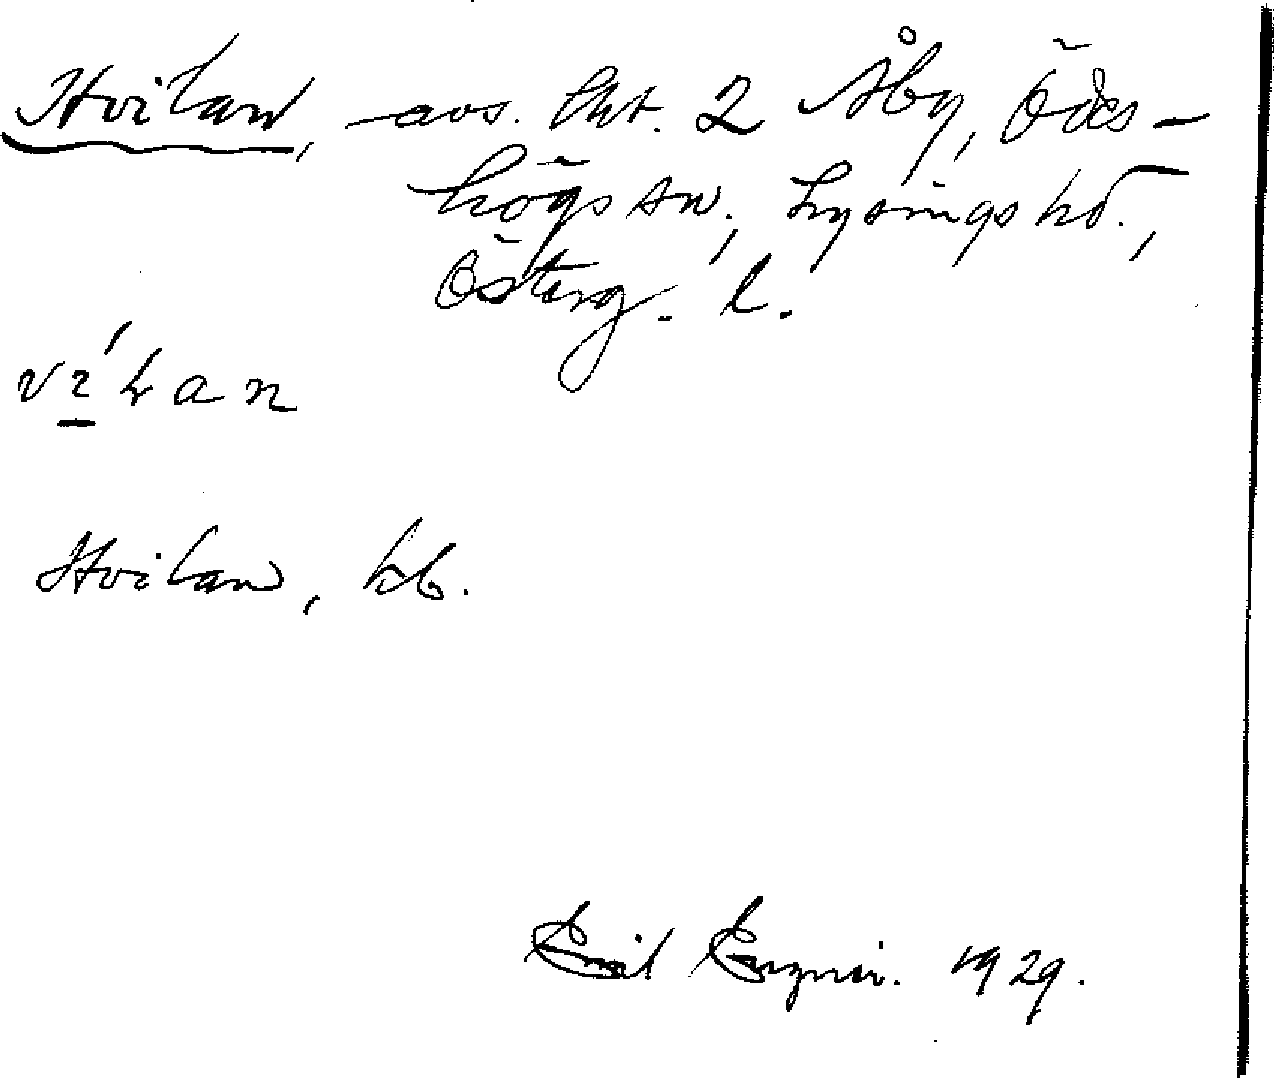 Hvilan, avs. lht. 2 Åby, Ödes-
högs sn., Lysings hd.,
Österg. l.
vílan
Hvilan, kb.
Emil 1929.